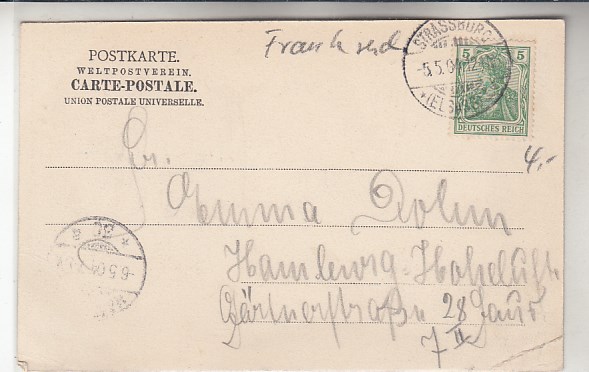 POSTKARTE.
WELTPOSTVEREIN.
CARTE-POSTALE.
UNION POSTALE UNIVERSELLE.
STRASSBURG
5 5
-5.5.04
(ELSASS)
DEUTSCHES REICH
4,-
Emma Dohrn
Hamburg-Hoheluft
Gärtnerstraße 28
7 II
-6.5.04